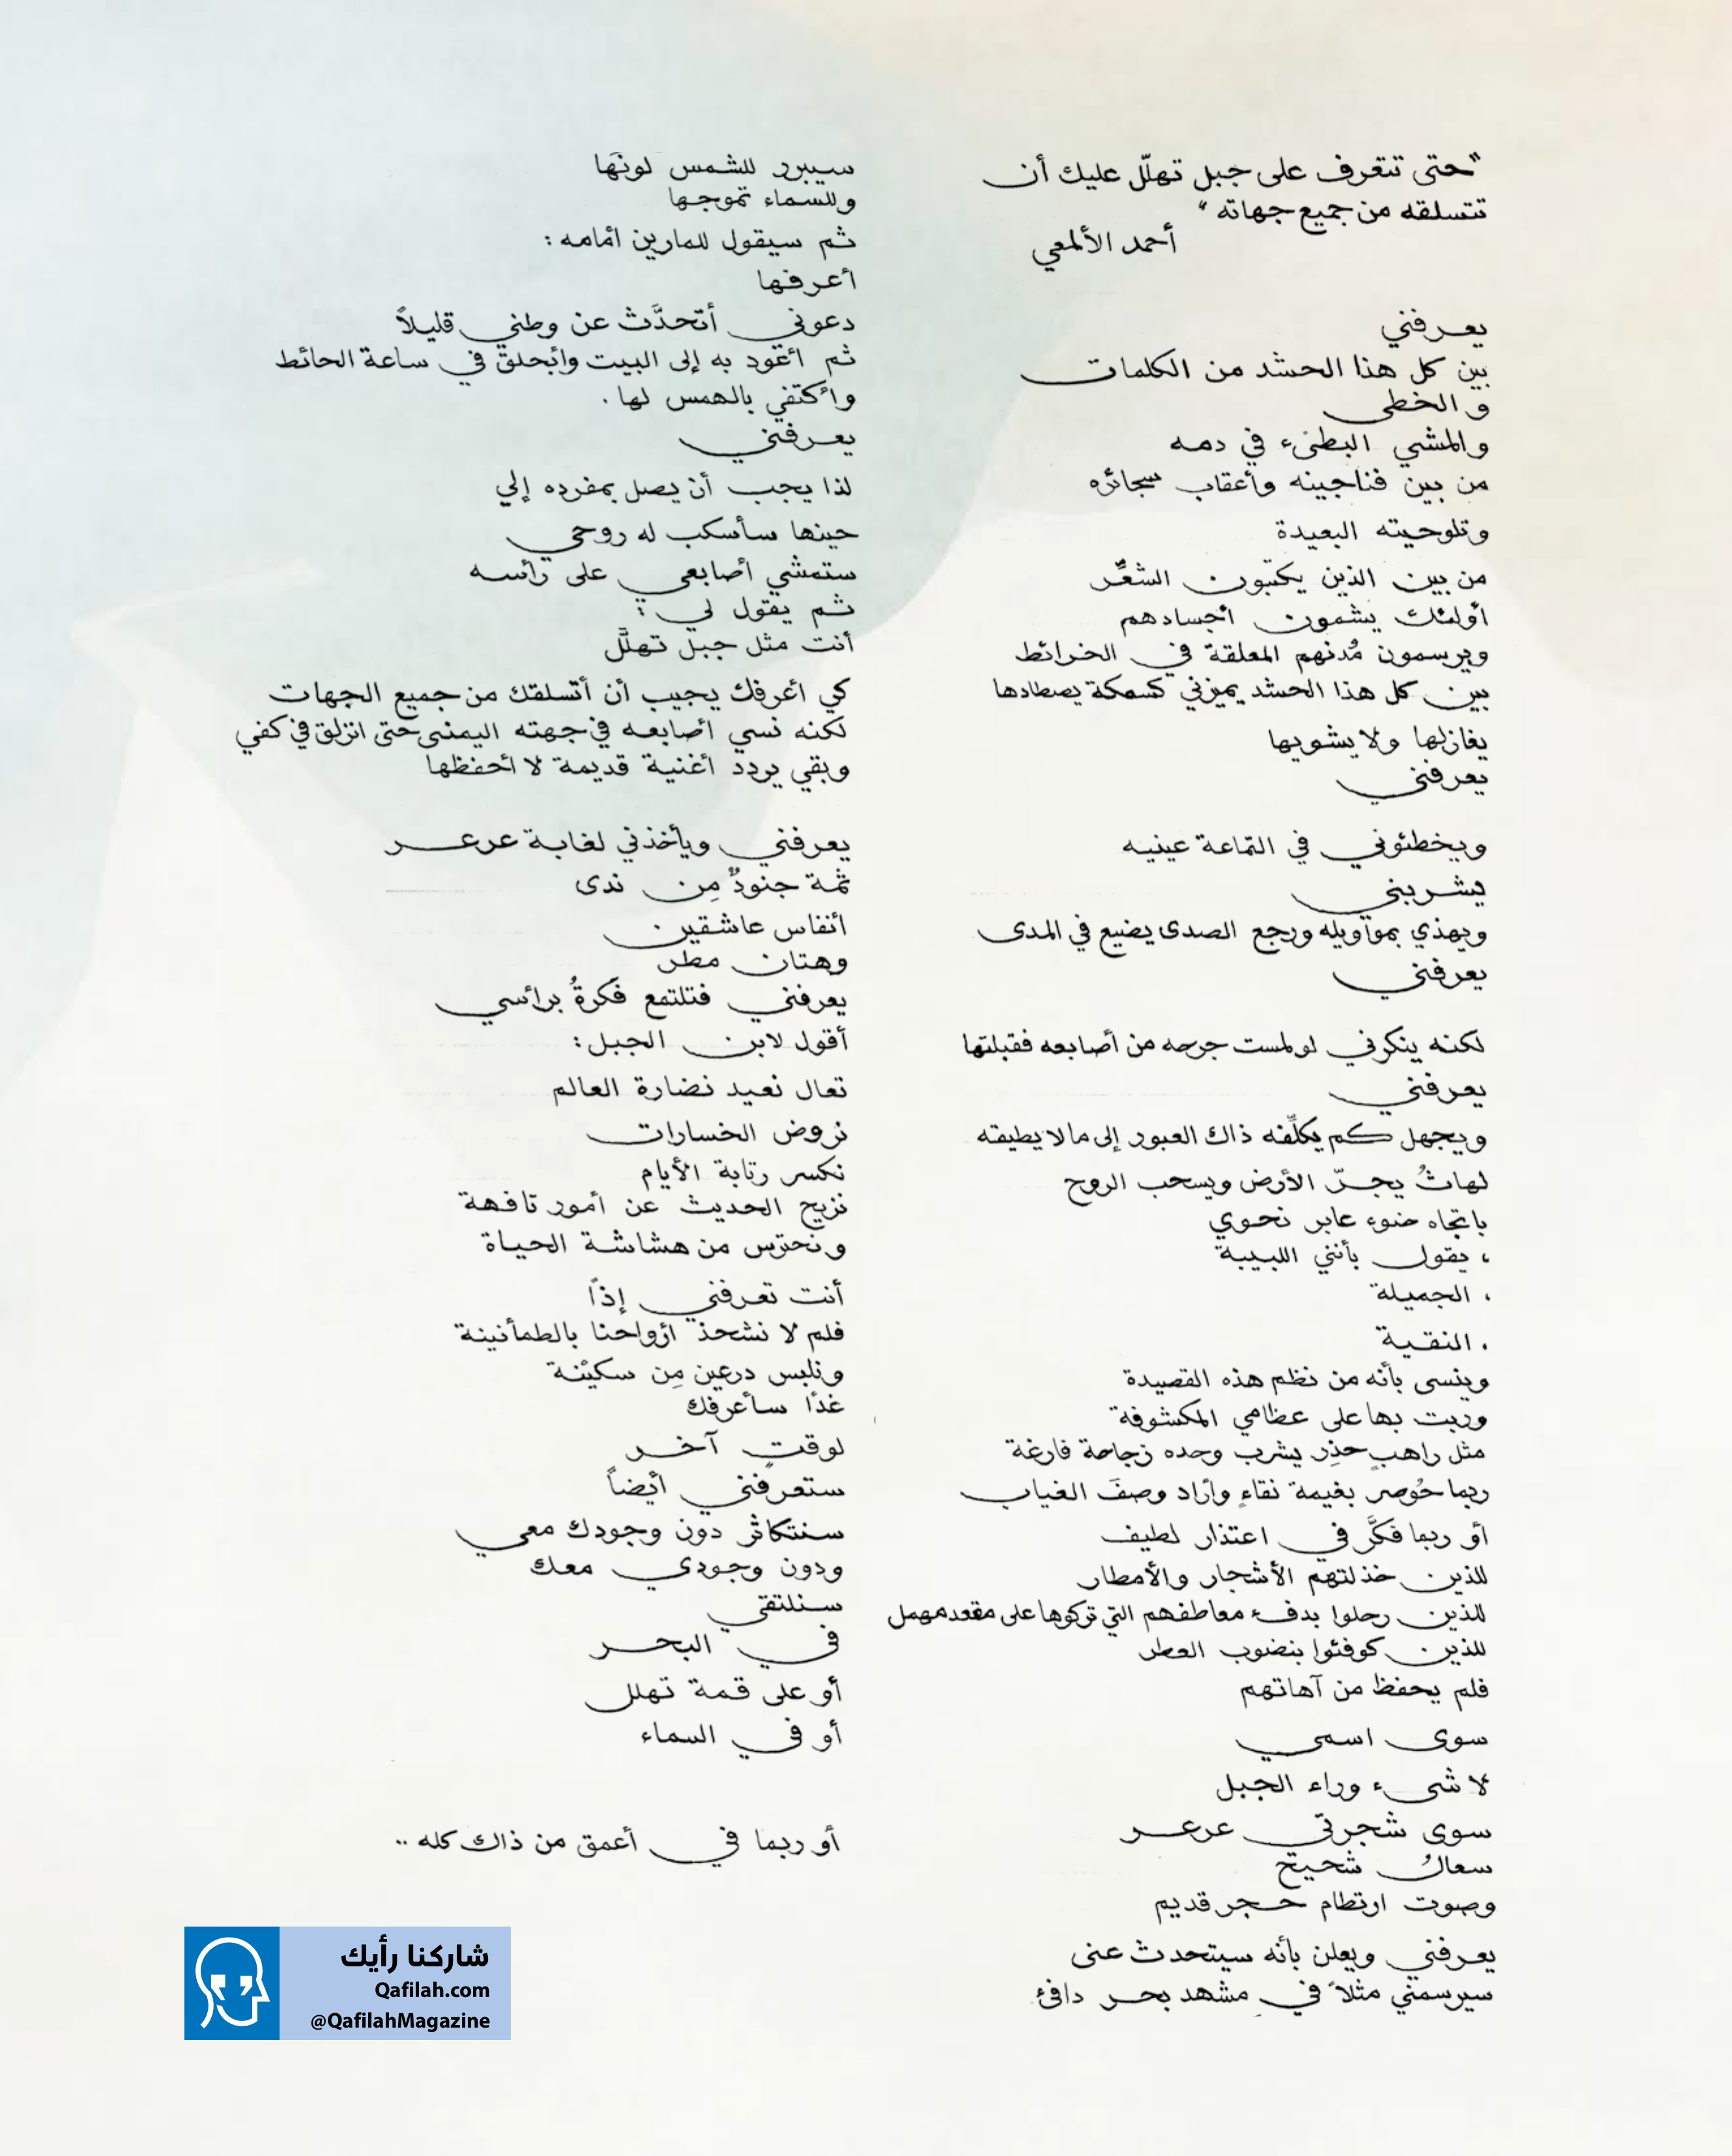 "حتى تتعرف على جبل تهلّل عليك أن
تتسلقه من جميع جهاته"
أحمد الألمعي
يعرفني
بين كل هذا الحشد من الكلمات
والخطى
والمشي البطيء في دمه
من بين فناجينه وأعقاب سجائره
وتلوحيته البعيدة
من بين الذين يكتبون الشعر
أولئك يشمون أجسادهم
ويرسمون مُدنهم المعلقة في الخرائط
بين كل هذا الحشد يميزني كسمكة يصطادها
يغازلها ولا يشويها
يعرفني
ويخطئوني في التماعة عينيه
فيشربني
ويهذي بمواويله ورجع الصدى يضيع في المدى
يعرفني
لكنه ينكرني لو لمست جرحه من أصابعه فقبلتها
يعرفني
ويجهل كم يكلّفه ذاك العبور إلى ما لا يطيقه
لهاثٌ يجرّ الأرض ويسحب الروح
باتجاه ضوء عابر نحوي
، يقول بأنني اللبيبة
، الجميلة
، النقية
وينسى بأنه من نظم هذه القصيدة
وربت بها على عظامي المكشوفة
مثل راهبٍ حذِر يشرب وحده زجاجة فارغة
ربما حُوصر بغيمة نقاءٍ وأراد وصفَ الغياب
أو ربما فكَّر في اعتذار لطيف
للذين خذلتهم الأشجار والأمطار
للذين رحلوا بدفء معاطفهم التي تركوها على مقعد مهمل
للذين كوفئوا بنضوب العطر
فلم يحفظ من آهاتهم
سوى اسمي
لا شيء وراء الجبل
سوى شجرتي عرعر
سعالٌ شحيح
وصوت ارتطام حجر قديم
يعرفني ويعلن بأنه سيتحدث عني
سيرسمني مثلاً في مشهد بحر دافئ
سيبرد للشمس لونَها
وللسماء تموجها
ثم سيقول للمارين أمامه :
أعرفها
دعوني أتحدَّث عن وطني قليلاً
ثم أعود به إلى البيت وأبحلق في ساعة الحائط
وأكتفي بالهمس لها .
يعرفني
لذا يجب أن يصل بمفرده إلي
حينها سأسكب له روحي
ستمشي أصابعي على رأسه
ثم يقول لي :
أنت مثل جبل تهلَّل
كي أعرفك يجيب أن أتسلقك من جميع الجهات
لكنه نسي أصابعه في جهته اليمنى حتى انزلق في كفي
وبقي يردد أغنية قديمة لا أحفظها
يعرفني ويأخذني لغابة عرعر
ثمة جنودٌ مِن ندى
أنفاس عاشقين
وهتان مطر
يعرفني فتلتمع فكرةٌ برأسي
أقول لابن الجبل :
تعال نعيد نضارة العالم
نروض الخسارات
نكسر رتابة الأيام
نزيح الحديث عن أمور تافهة
ونحترس من هشاشة الحياة
أنت تعرفني إذاً
فلم لا نشحذ أرواحنا بالطمأنينة
ونلبس درعين مِن سكيْنة
غدًا سأعرفك
لوقتٍ آخر
ستعرفني أيضاً
سنتكاثر دون وجودك معي
ودون وجودي معك
سنلتقي
في البحر
أو على قمة تهلل
أو في السماء
أو ربما في أعمق من ذاك كله ..
شاركنا رأيك
Qafilah.com
@QafilahMagazine